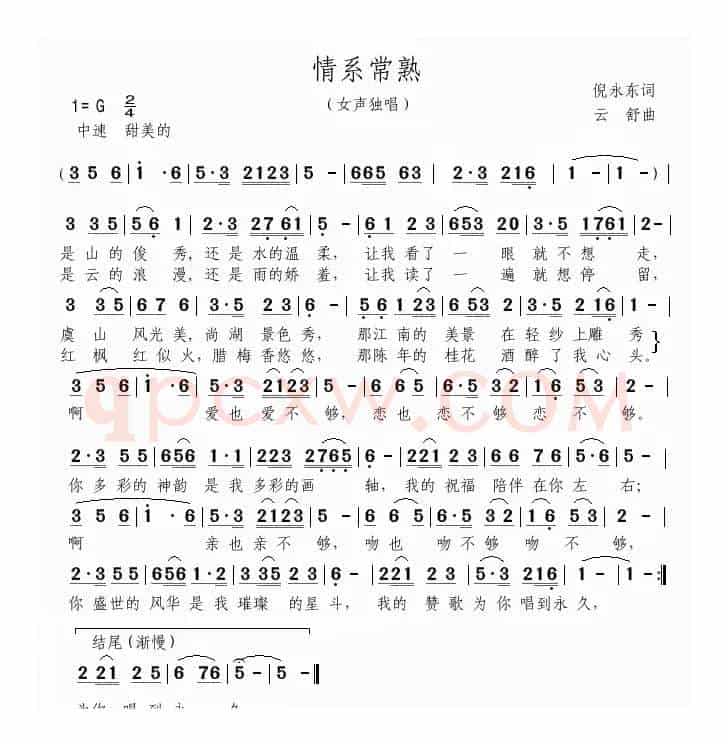 情系常熟
(女声独唱)
倪永东词
云 舒曲
1= G 2/4
中速 甜美的
(3 5 6 | i ·6 | 5·3 2123 | 5 - | 665 63 | 2·3 216 | 1 - | 1 - )|
3 35 | 56 1 | 2·3 2761 | 5 - | 61 23 | 653 20 | 3·5 1761 | 2 - |
是山的俊 秀,还是水的温 柔, 让我看了一 眼就不想 走,
是云的浪 漫,还是雨的娇 羞, 让我读了一 遍就想停 留,
3 35 | 67 6 | 3·5 23 | 6 - | 561 23 | 6 53 | 3·5 216 | 5 - |
虞 山 风光美,尚湖 景色秀, 那江南的 美景 在轻纱上雕 秀
红 枫 红似火,腊梅 香悠悠, 那陈年的 桂花 酒醉了我心 头。
3 5 6 | i ·6 | 5·3 2123 | 5 - | 6 65 | 6·5 32 | 1 6 53 | 2 - |
啊 爱也爱不 够, 恋也 恋不够 恋不 够。
2·3 55 | 656 | 1·2 | 223 2765 | 6 - | 2 221 | 66 76 | 5·6 | 5 - |
你多彩的 神韵 是我 多彩的画 轴, 我的祝福 陪伴在你左 右;
3 5 6 | i ·6 | 5·3 2123 | 5 - | 6 65 | 6·5 32 | 16 53 | 2 - |
啊 亲也亲不 够, 吻也 吻不够 吻不 够,
2·3 55 | 656 | 1·2 | 335 23 | 5 - | 2 221 | 23 5·3 | 216 | 1 - | 1 - :|
你 盛世的 风华 是我 璀璨 的星斗, 我的 赞歌为你 唱到永久,
结尾(渐慢)
2 21 25 | 6 76 | 5 - | 5 - ‖